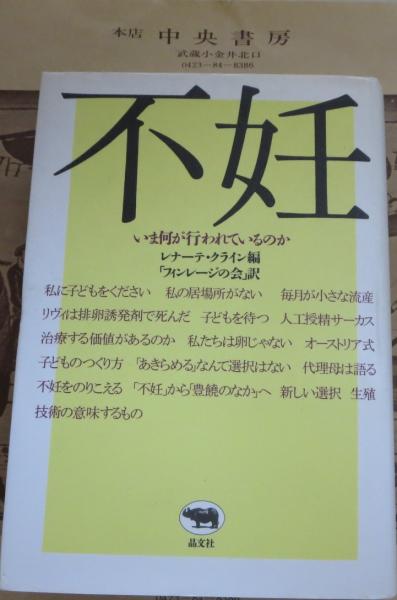 本店 中央書房
武蔵小金井北口
0423-84-8386
不妊
いま何が行われているのか
レナーテ・クライン編
「フィンレージの会」訳
私に子どもをください 私の居場所がない 毎月が小さな流産
リヴィは排卵誘発剤で死んだ 子どもを待つ 人工授精サーカス
治療する価値があるのか 私たちは卵じゃない オーストリア式
子どものつくり方 「あきらめる」なんて選択はない 代理母は語る
不妊をのりこえる 「不妊」から「豊饒のなか」へ 新しい選択 生殖
技術の意味するもの
晶文社